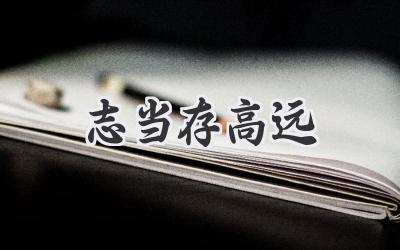 志当存高远